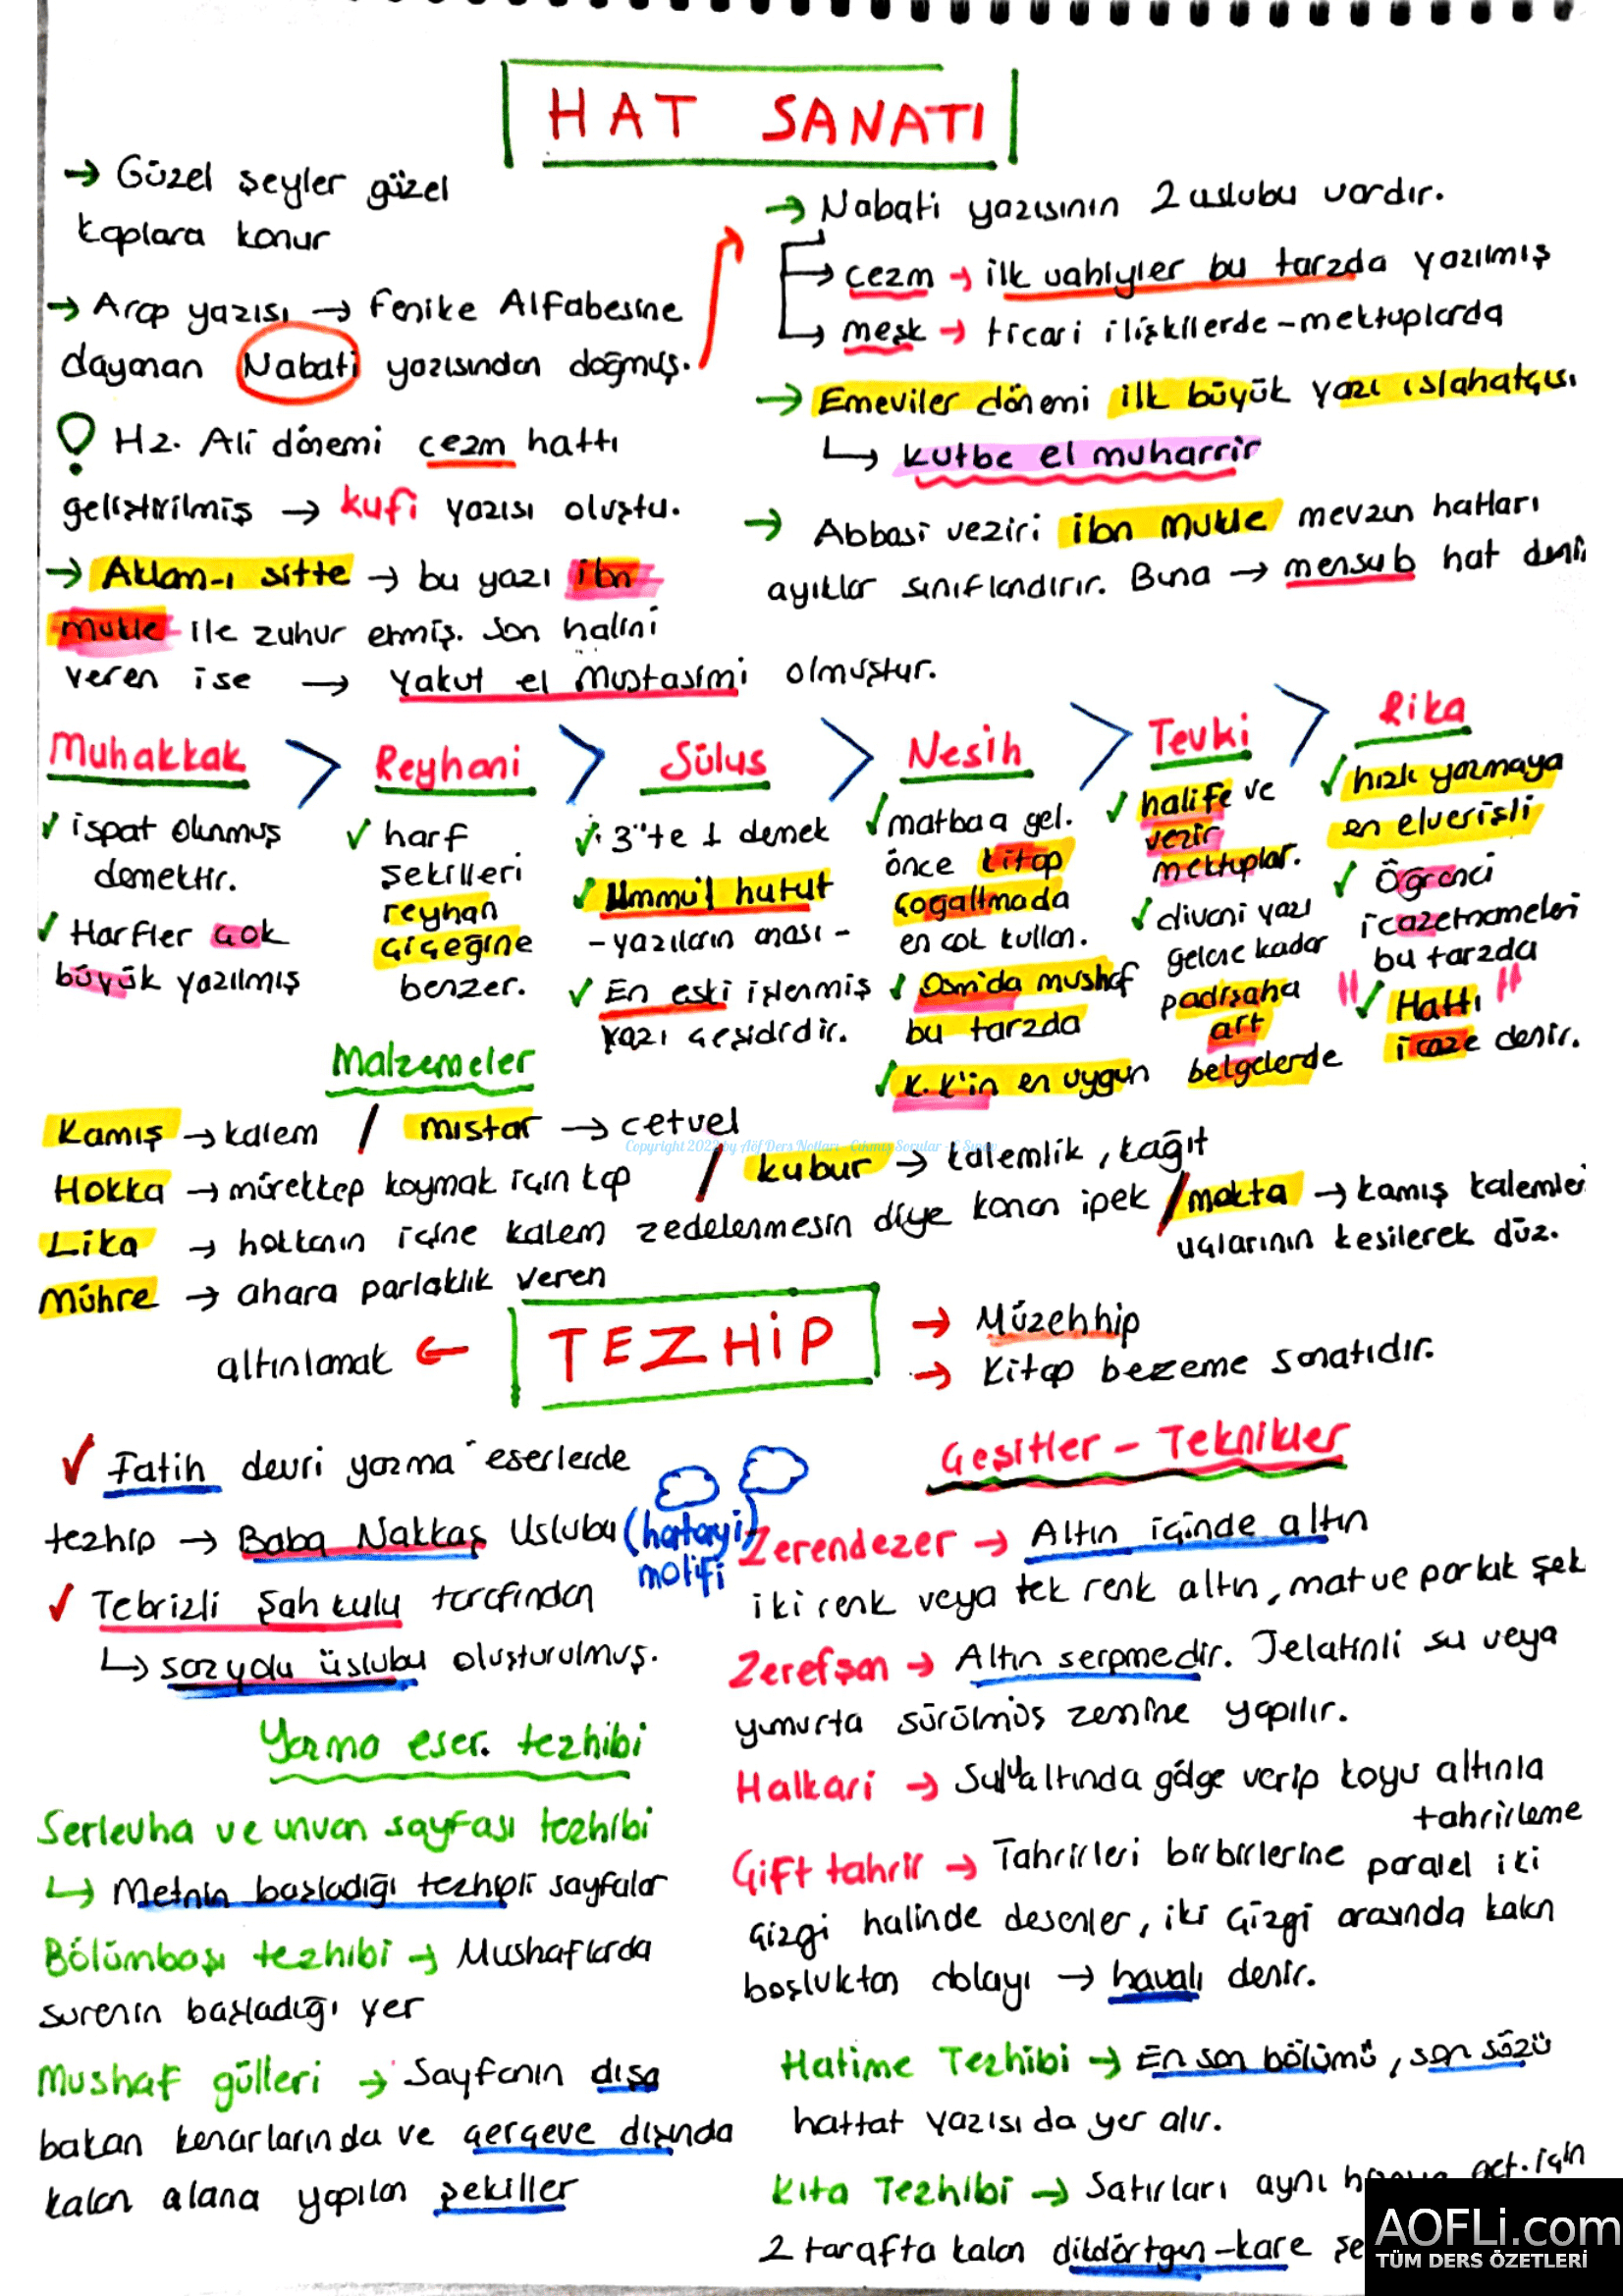 HAT SANATI
→ Güzel şeyler güzel
kaplara konur
→ Arap yazısı → Fenike Alfabesine
dayanan Nabati yazısından doğmuş.
! Hz. Ali dönemi cezm hattı
geliştirilmiş → kufi yazısı oluştu.
→ Aklam-ı sitte → bu yazı ibn
mukle ile zuhur etmiş. Son halini
veren ise → Yakut el Mustasimi olmuştur.
→ Nabati yazısının 2 uslubu vardır.
→ cezm → ilk vahiyler bu tarzda yazılmış
→ meşk → ticari ilişkilerde - mektuplarda
→ Emeviler dönemi ilk büyük yazı ıslahatçısı
↳ kutbe el muharrir
→ Abbasi veziri ibn mukle mevzun hatları
ayıklar sınıflandırır. Buna → mensub hat denir
Muhakkak > Reyhani > Sülus > Nesih > Tevki > Rika
✓ ispat olunmuş
demektir.
✓ Harfler çok
büyük yazılmış
✓ harf
şekilleri
reyhan
çiçeğine
benzer.
✓ 3'te 1 demek
✓ Ümmü'l hutut
- yazıların anası -
✓ En eski işlenmiş
yazı çeşididir.
✓ matbaa gel.
önce kitap
çoğaltmada
en çok kullan.
✓ Osm'da mushaf
bu tarzda
✓ K.K'in en uygun
✓ halife ve
vezir
mektuplar.
✓ divani yazı
gelene kadar
padişaha
ait
belgelerde
✓ hızlı yazmaya
en elverişli
✓ Öğrenci
icazetnameleri
bu tarzda
"✓ Hattı "
icaze denir.
Malzemeler
Kamış → kalem / mıstar → cetvel
Copyright 2022 by Aöf Ders Notları - Çıkmış Sorular - E Sınav
Hokka → mürekkep koymak için kap / kubur → kalemlik, kağıt
Lika → hokkanın içine kalem zedelenmesin diye konan ipek / makta → kamış kalemleri
uçlarının kesilerek düz.
Mühre → ahara parlaklık veren
altınlamak ← TEZHİP → Müzehhip
→ Kitap bezeme sanatıdır.
✓ Fatih devri yazma eserlerde
tezhip → Baba Nakkaş Uslubu (hatayi)
motifi
✓ Tebrizli Şah kulu tarafından
↳ sazyolu üslubu oluşturulmuş.
Yazma eser. tezhibi
Serlevha ve unvan sayfası tezhibi
↳ Metnin başladığı tezhipli sayfalar
Bölümbaşı tezhibi → Mushaflarda
surenin başladığı yer
Mushaf gülleri → Sayfanın dışa
bakan kenarlarında ve çerçeve dışında
kalan alana yapılan şekiller
Çeşitler - Teknikler
Zerendezer → Altın içinde altın
iki renk veya tek renk altın, mat ve parlak şek
Zerefşan → Altın serpmedir. Jelatinli su veya
yumurta sürülmüş zemine yapılır.
Halkari → Sulu altında gölge verip koyu altınla
tahrirleme
Çift tahrir → Tahrirleri birbirlerine paralel iki
çizgi halinde desenler, iki çizgi arasında kalan
boşluktan dolayı → havalı denir.
Hatime Tezhibi → En son bölümü, son sözü
hattat yazısı da yer alır.
Kıta Tezhibi → Satırları aynı için
2 tarafta kalan dikdörtgen - kare şe
AOFLi.com
TÜM DERS ÖZETLERİ